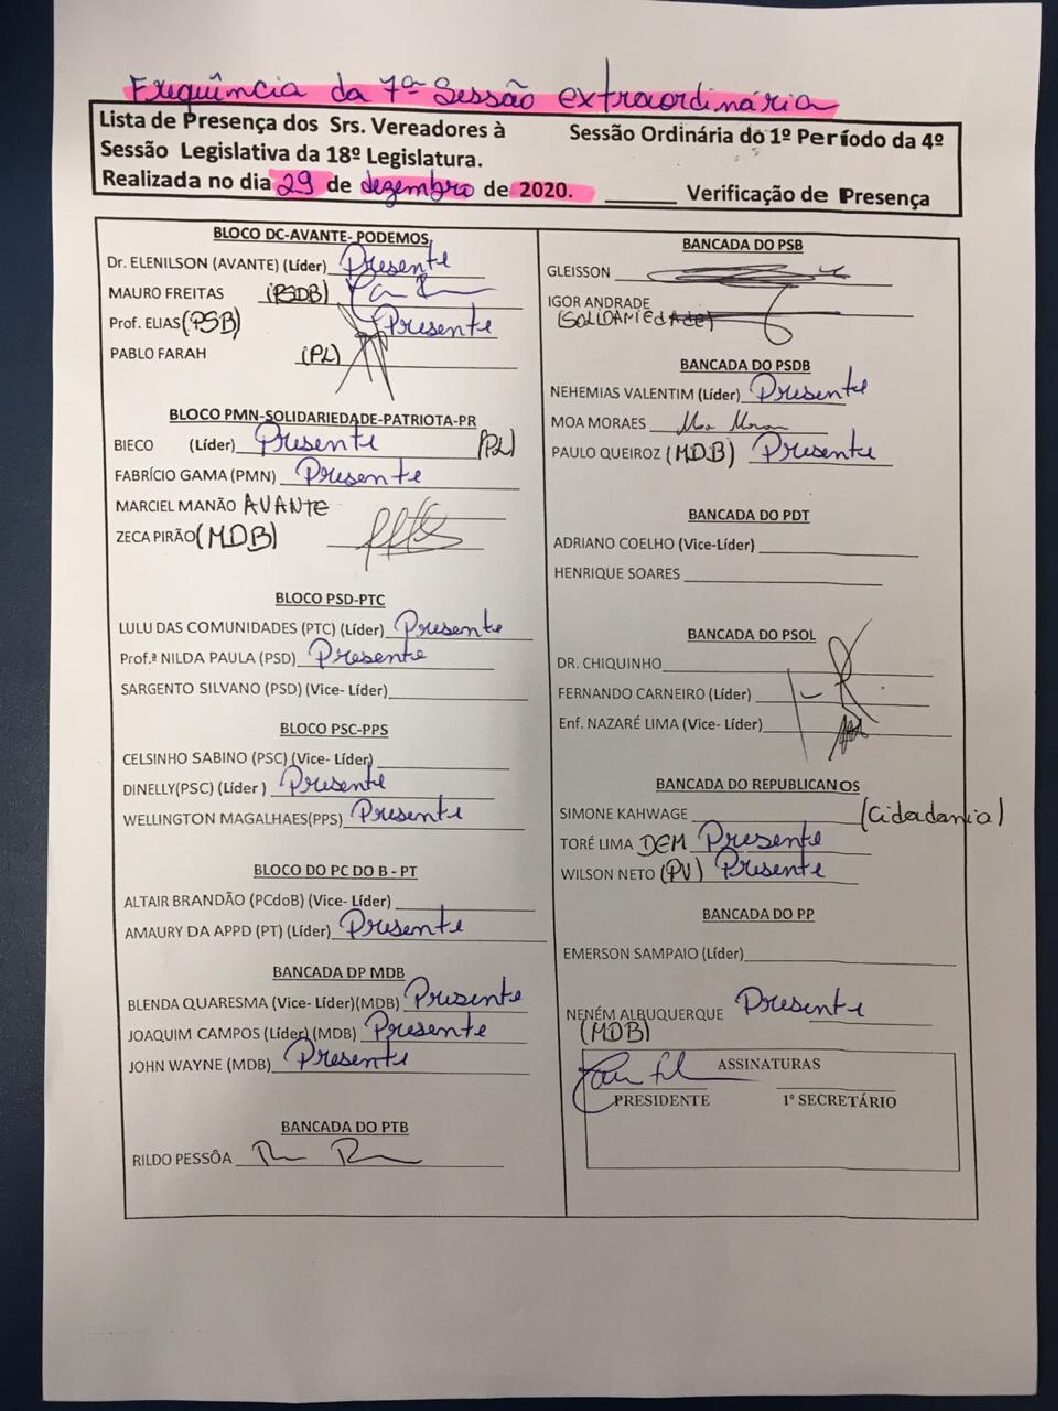 Frequência da 7ª Sessão extraordinária
Lista de Presença dos Srs. Vereadores à Sessão Ordinária do 1º Período da 4º
Sessão Legislativa da 18º Legislatura.
Realizada no dia 29 de dezembro de 2020. ______ Verificação de Presença
BLOCO DC-AVANTE-PODEMOS
Dr. ELENILSON (AVANTE) (Líder) Presente
MAURO FREITAS (PSDB)
Prof. ELIAS (PSB) Presente
PABLO FARAH (PL)
BLOCO PMN-SOLIDARIEDADE-PATRIOTA-PR
BIECO (Líder) Presente (PL)
FABRÍCIO GAMA (PMN) Presente
MARCIEL MANÃO AVANTE
ZECA PIRÃO (MDB)
BLOCO PSD-PTC
LULU DAS COMUNIDADES (PTC) (Líder) Presente
Prof.ª NILDA PAULA (PSD) Presente
SARGENTO SILVANO (PSD) (Vice- Líder)
BLOCO PSC-PPS
CELSINHO SABINO (PSC) (Vice- Líder)
DINELLY(PSC) (Líder ) Presente
WELLINGTON MAGALHAES(PPS) Presente
BLOCO DO PC DO B - PT
ALTAIR BRANDÃO (PCdoB) (Vice- Líder)
AMAURY DA APPD (PT) (Líder) Presente
BANCADA DP MDB
BLENDA QUARESMA (Vice- Líder)(MDB) Presente
JOAQUIM CAMPOS (Líder) (MDB) Presente
JOHN WAYNE (MDB) Presente
BANCADA DO PTB
RILDO PESSÔA
BANCADA DO PSB
GLEISSON
IGOR ANDRADE
(SOLIDARIEDADE)
BANCADA DO PSDB
NEHEMIAS VALENTIM (Líder) Presente
MOA MORAES Moa Moraes
PAULO QUEIROZ (MDB) Presente
BANCADA DO PDT
ADRIANO COELHO (Vice-Líder)
HENRIQUE SOARES
BANCADA DO PSOL
DR. CHIQUINHO
FERNANDO CARNEIRO (Líder)
Enf. NAZARÉ LIMA (Vice- Líder)
BANCADA DO REPUBLICANOS
SIMONE KAHWAGE (Cidadania)
TORÉ LIMA DEM Presente
WILSON NETO (PV) Presente
BANCADA DO PP
EMERSON SAMPAIO (Líder)
NENÉM ALBUQUERQUE Presente
(MDB)
ASSINATURAS
PRESIDENTE 1º SECRETÁRIO